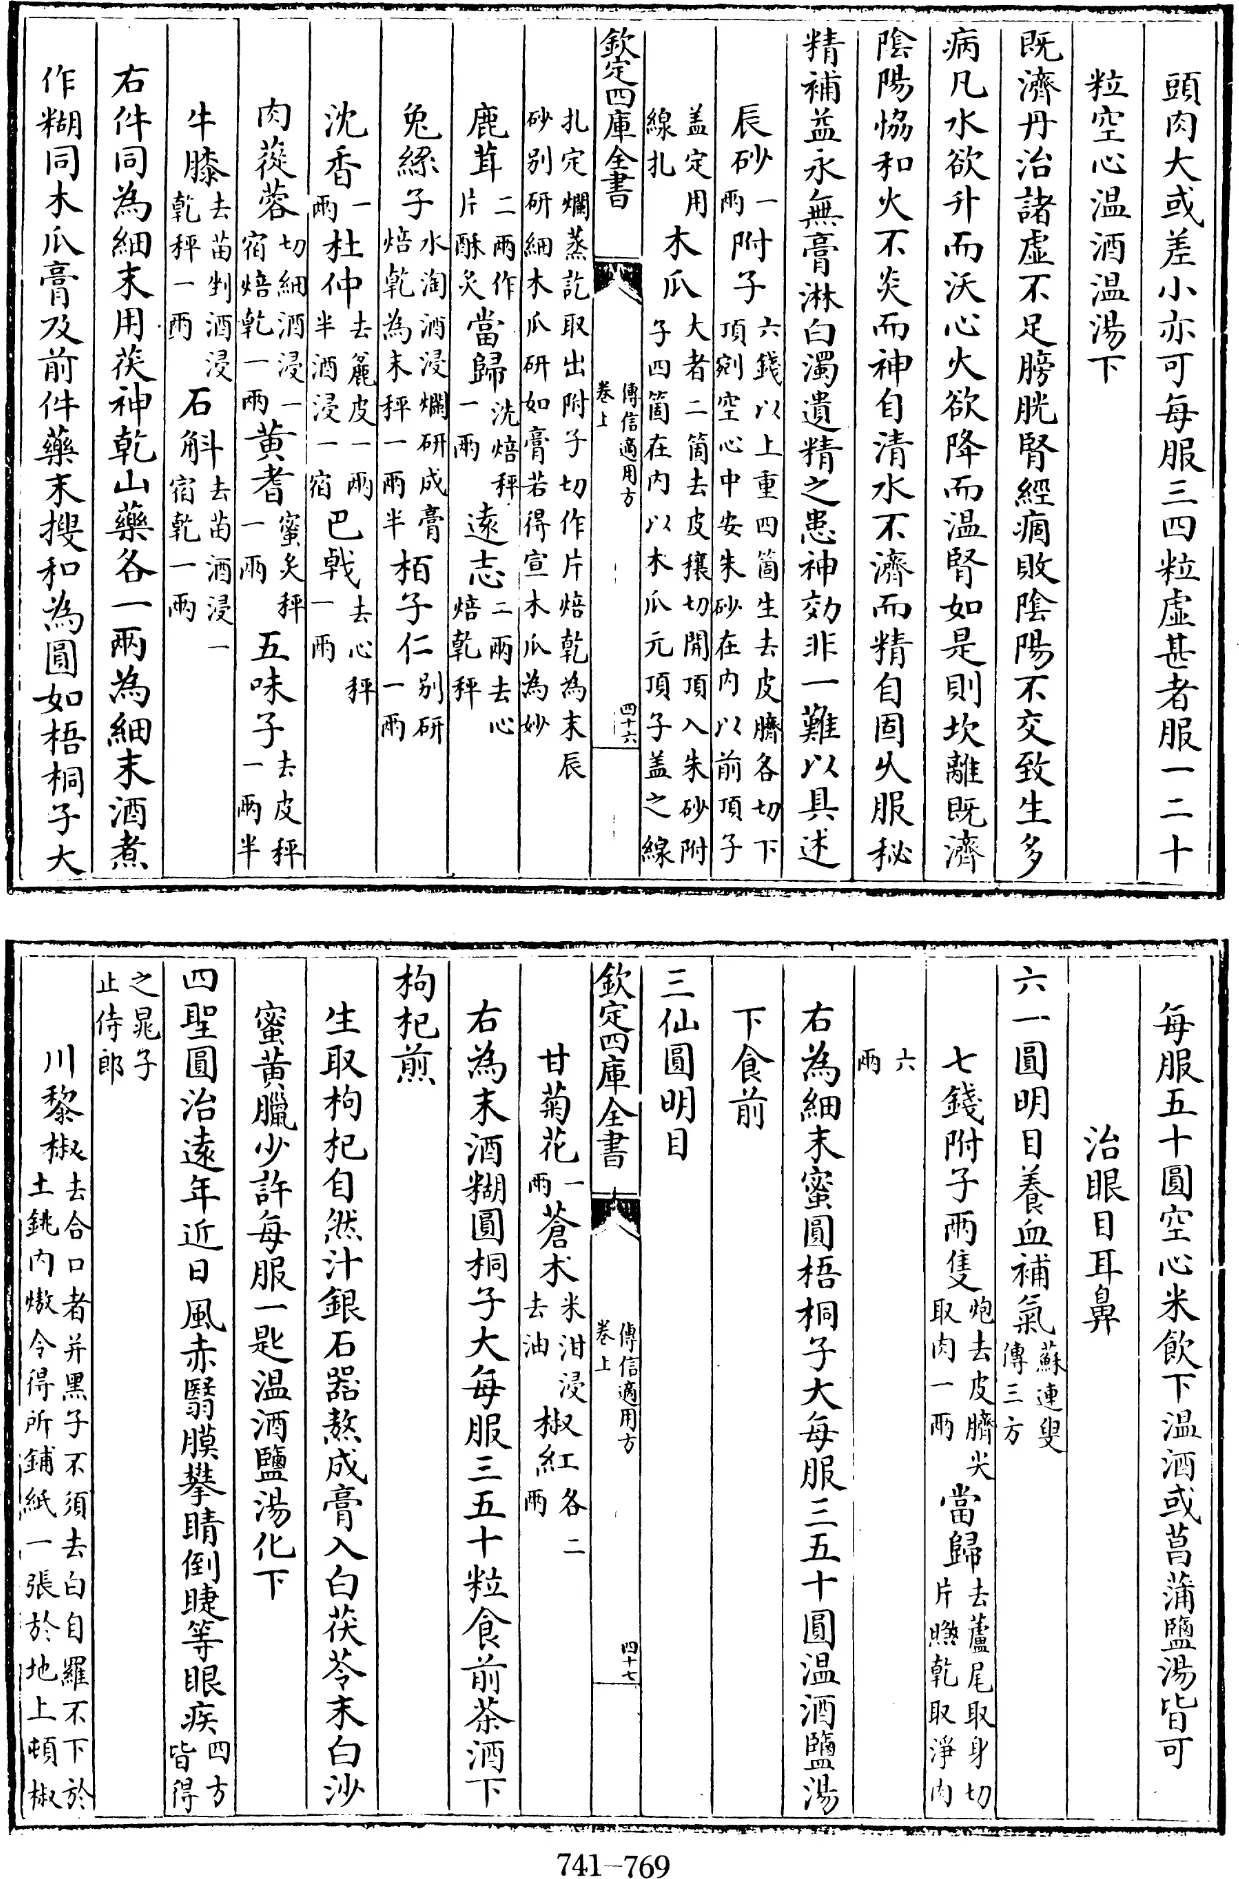 頭肉大或差小亦可每服三四粒虚甚者服一二十
粒空心温酒温湯下
既濟丹治諸虚不足膀胱腎經痼敗陰陽不交致生多
病凡水欲升而沃心火欲降而温腎如是則坎離既濟
陰陽恊和火不炎而神自清水不濟而精自固乆服秘
精補益永無膏淋白濁遺精之患神効非一難以具述
辰砂一兩附子六錢以上重四箇生去皮臍各切下頂剜空心中安朱砂在内以前頂子
盖定用線扎木瓜大者二箇去皮穰切開頂入朱砂附子四箇在内以木瓜元頂子盖之線
欽定四庫全書 傳信適用方卷上 四十六
扎定爛蒸訖取出附子切作片焙乾為末辰砂别研細木瓜研如膏若得宣木瓜為妙
鹿茸二兩作片酥炙當歸洗焙秤一兩遠志二兩去心焙乾秤
兔絲子水淘酒浸爛研成膏焙乾為末秤一兩半栢子仁别研一兩
沈香一兩杜仲去麄皮一兩半酒浸一宿巴㦸去心秤一兩
肉蓯蓉切細酒浸一宿焙乾一兩黄耆蜜炙秤一兩五味子去皮秤一兩半
牛膝去苗剉酒浸乾秤一兩石斛去苗酒浸一宿乾一兩
右件同為細末用茯神乾山藥各一兩為細末酒煮
作糊同木瓜膏及前件藥末搜和為圓如梧桐子大
每服五十圓空心米飲下温酒或菖蒲鹽湯皆可
治眼目耳鼻
六一圓明目養血補氣蘇連叟傳三方
七錢附子兩隻炮去皮臍尖取肉一兩當歸去蘆尾取身切片㬠乾取淨肉
六兩
右為細末蜜圓梧桐子大每服三五十圓温酒鹽湯
下食前
三仙圓明目
欽定四庫全書 傳信適用方卷上 四十七
甘菊花一兩蒼术米泔浸去油椒紅各二兩
右為末酒糊圓桐子大每服三五十粒食前茶酒下
枸杞煎
生取枸杞自然汁銀石器熬成膏入白茯苓末白沙
蜜黄臘少許每服一匙温酒鹽湯化下
四聖圓治遠年近日風赤翳膜攀睛倒睫等眼疾四方皆得
之晁子止侍郎
川黎椒去合口者并黑子不須去白自羅不下於土銚内㷅令得所鋪紙一張於地上頓椒
741-769